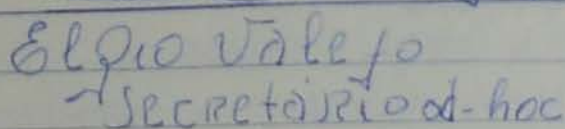 Elpio Vallejo
secretario ad-hoc